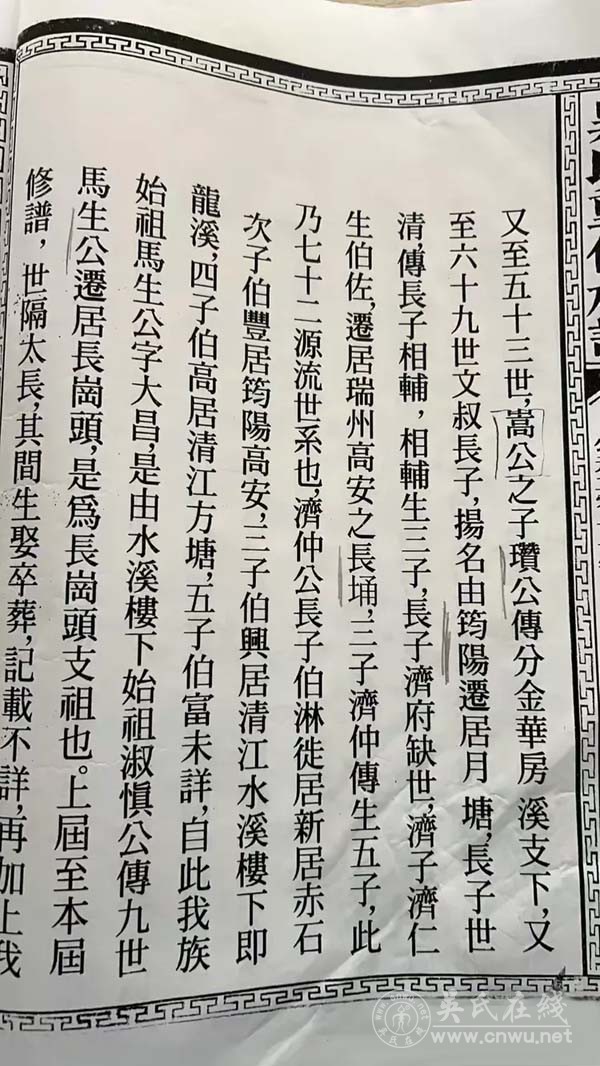 又至五十三世，嵩公之子瓚公傳分金華房 溪支下，又
至六十九世文叔長子，揚名由筠陽遷居月 塘，長子世
清，傳長子相輔，相輔生三子，長子濟府缺世，濟子濟仁
生伯佐，遷居瑞州高安之長埇，三子濟仲傳生五子，此
乃七十二源流世系也，濟仲公長子伯淋徙居新居赤石
次子伯豐居筠陽高安，三子伯興居清江水溪樓下即
龍溪，四子伯高居清江方塘，五子伯富未詳，自此我族
始祖馬生公字大昌，是由水溪樓下始祖淑慎公傳九世
馬生公遷居長崗頭，是爲長崗頭支祖也。上屆至本屆
修譜，世隔太長，其間生娶卒葬，記載不詳，再加上我
吳氏在线
www.cnwu.net